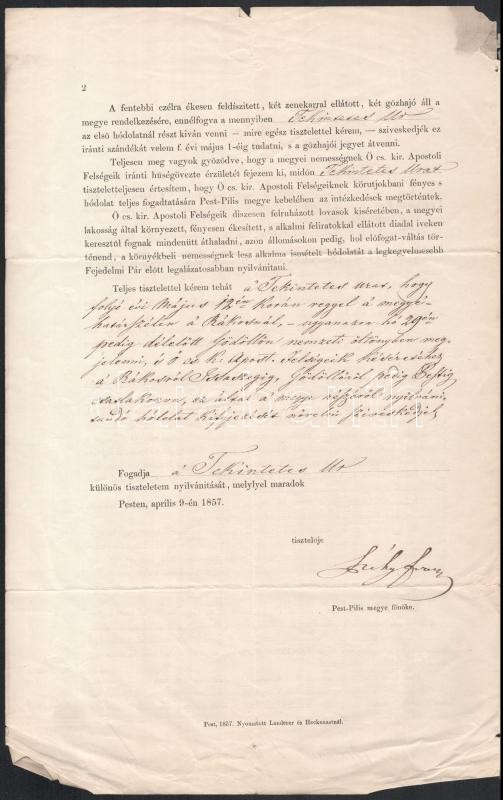 2
A fentebbi czélra ékesen feldiszitett, két zenekarral ellátott, két gőzhajó áll a
megye rendelkezésére, ennélfogva a mennyiben Tekintetes Ur
az első hódolatnál részt kiván venni — mire egész tisztelettel kérem, — sziveskedjék ez
iránti szándékát velem f. évi május 1-éig tudatni, s a gőzhajói jegyet átvenni.
Teljesen meg vagyok győződve, hogy a megyei nemességnek Ő cs. kir. Apostoli
Felségeik iránti hűségövezte érzületét fejezem ki, midőn Tekintetes Urat
tiszteletteljesen értesitem, hogy Ő cs. kir. Apostoli Felségeiknek körutjokbani fényes s
hódolat teljes fogadtatására Pest-Pilis megye kebelében az intézkedések megtörténtek.
Ő cs. kir. Apostoli Felségeik diszesen felruházott lovasok kiséretében, a megyei
lakosság által környezett, fényesen ékesitett, s alkalmi feliratokkal ellátott diadal iveken
keresztül fognak mindenütt áthaladni, azon állomásokon pedig, hol előfogat-váltás tör-
ténend, a környékbeli nemességnek lesz alkalma ismételt hódolatát a legkegyelmesebb
Fejedelmi Pár előtt legalázatosabban nyilvánitani.
Teljes tisztelettel kérem tehát a Tekintetes Urat, hogy
folyó évi Május korán reggel a megye
határszélén a Rákosnál, — ugyanazon hó 29én
pedig délelőtt Gödöllőn nemzeti öltönyben meg-
jelenni, s Ő cs. K. Apost. Felségeik kiséretéhez
a Rákosról Gödöllőről pedig Pestig
csatlakozni, ez által a megye részéről nyilváni-
tandó hódolat kifejezését növelni sziveskedjék
Fogadja a Tekintetes Ur
különös tiszteletem nyilvánitását, melylyel maradok
Pesten, aprilis 9-én 1857.
tisztelője
Pest-Pilis megye főnöke.
Pest, 1857. Nyomatott Landerer és Heckenastnál.